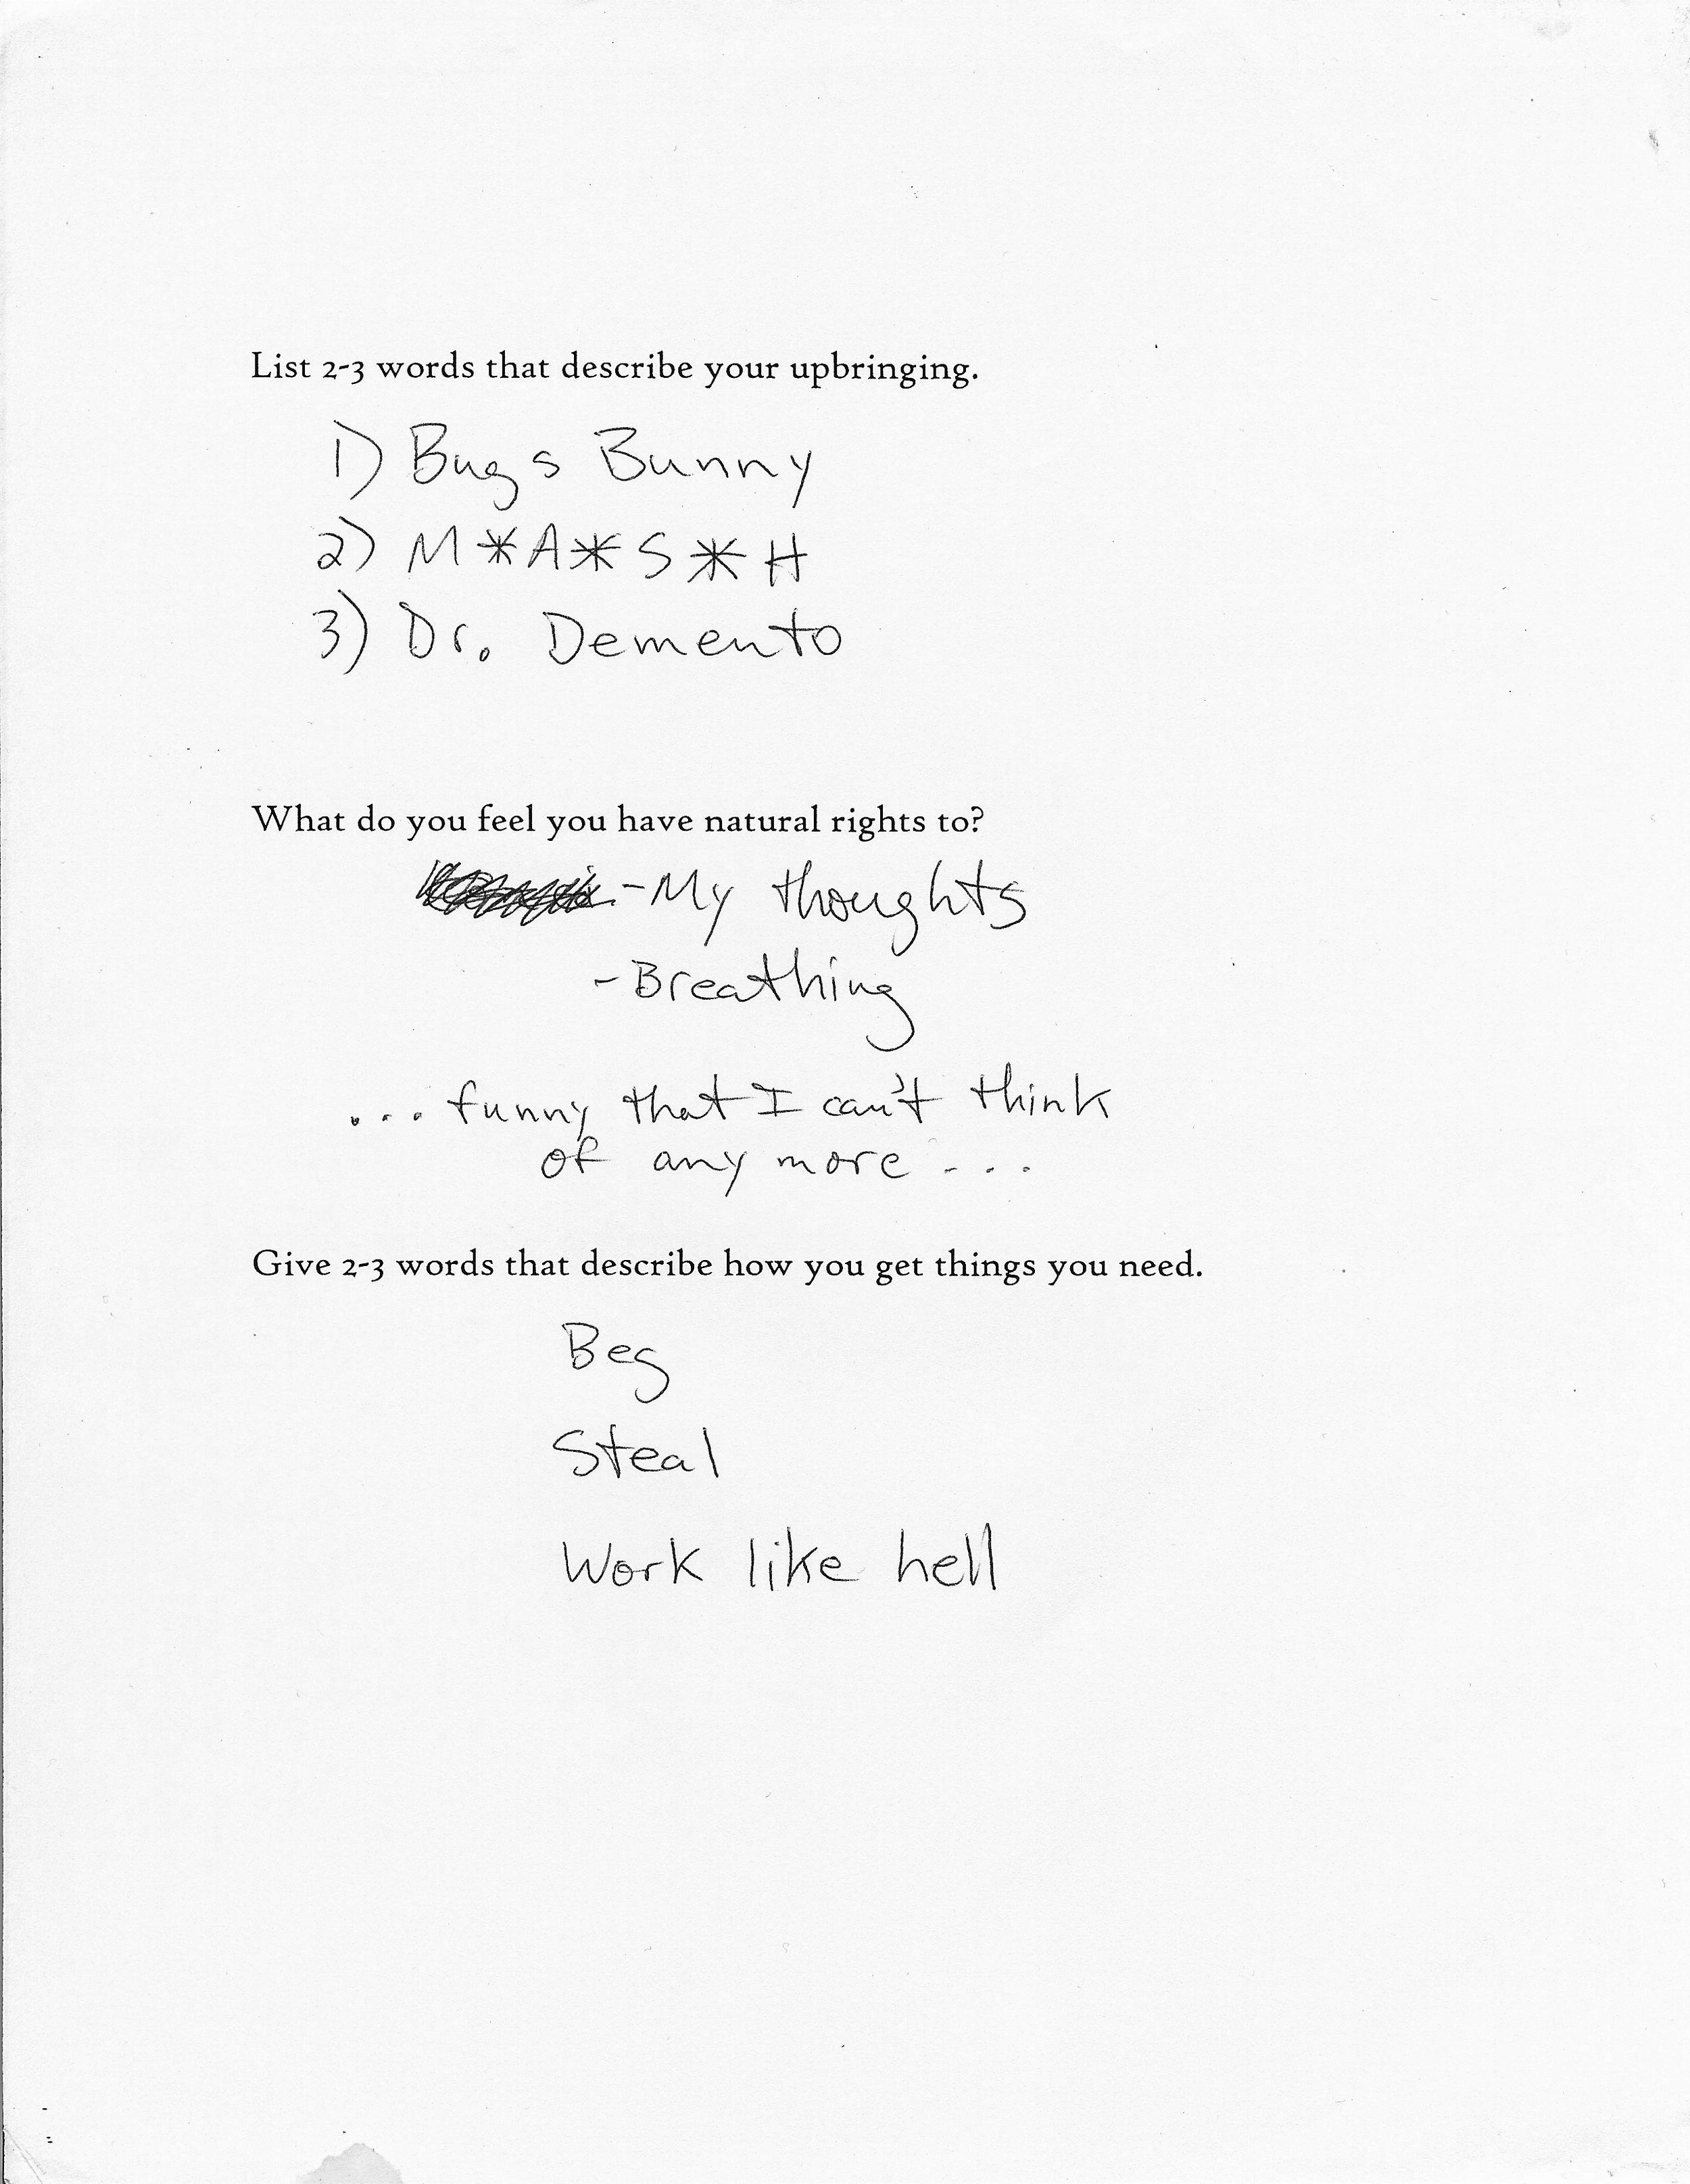 List 2-3 words that describe your upbringing.
1) Bugs Bunny
2) M*A*S*H
3) Dr. Demento
What do you feel you have natural rights to?
-My thoughts
-Breathing
... funny that I can't think
of any more ...
Give 2-3 words that describe how you get things you need.
Beg
Steal
Work like hell